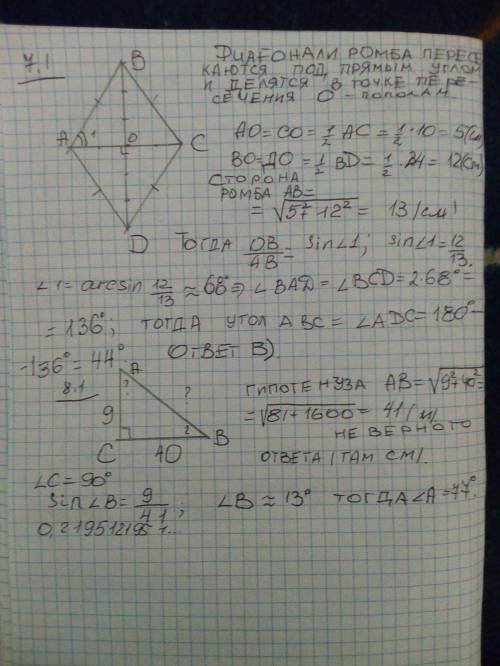 7.1
ДИАГОНАЛИ РОМБА ПЕРЕСЕ-
КАЮТСЯ ПОД ПРЯМЫМ УГЛОМ
И ДЕЛЯТСЯ В ТОЧКЕ ПЕРЕ-
СЕЧЕНИЯ О - ПОПОЛАМ.
B
A 1 O C
D
AO = CO = 1/2 AC = 1/2 · 10 = 5 (см)
BO = ДО = 1/2 BD = 1/2 · 24 = 12 (см)
СТОРОНА
РОМБА AB =
= √5² + 12² = 13 (см)
ТОГДА OB/AB = sin∠1; sin∠1 = 12/13.
∠1 = arcsin 12/13 ≈ 68° ⇒ ∠BAD = ∠BCD = 2·68° =
= 136°; ТОГДА УГОЛ ABC = ∠ADC = 180° -
- 136° = 44°. ОТВЕТ В).
8.1
A
? ?
9
C 40 ? B
ГИПОТЕНУЗА AB = √9² + 40² =
= √81 + 1600 = 41 (м)
НЕ ВЕРНОГО
ОТВЕТА (ТАМ СМ).
∠C = 90°
sin∠B = 9/41; ∠B ≈ 13° ТОГДА ∠A = 77°.
0,219512195 1...